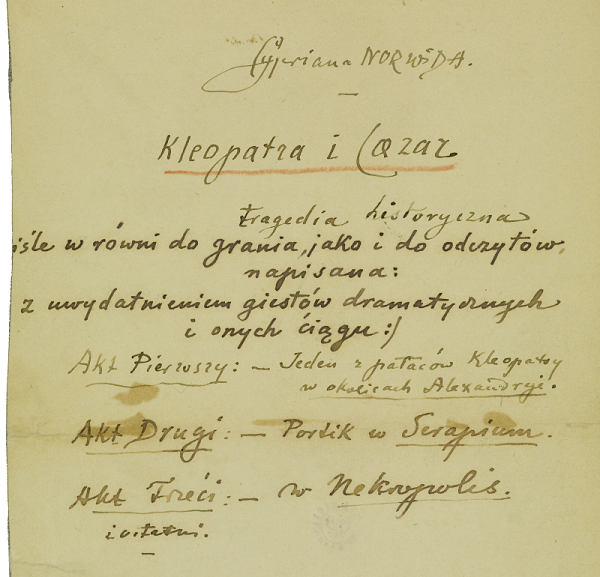 Cypriana NORWIDA.
Kleopatra i Cæzar
tragedia historyczna
iśle w równi do grania, jako i do odczytów,
napisana:
z uwydatnieniem giestów dramatycznych
i onych ciągu:)
Akt Pierwszy: – Jeden z pałaców Kleopatry
w okolicach Alexandryi.
Akt Drugi: – Portik w Serapium.
Akt Trzeci: – w Nekropolis.
i ostatni.